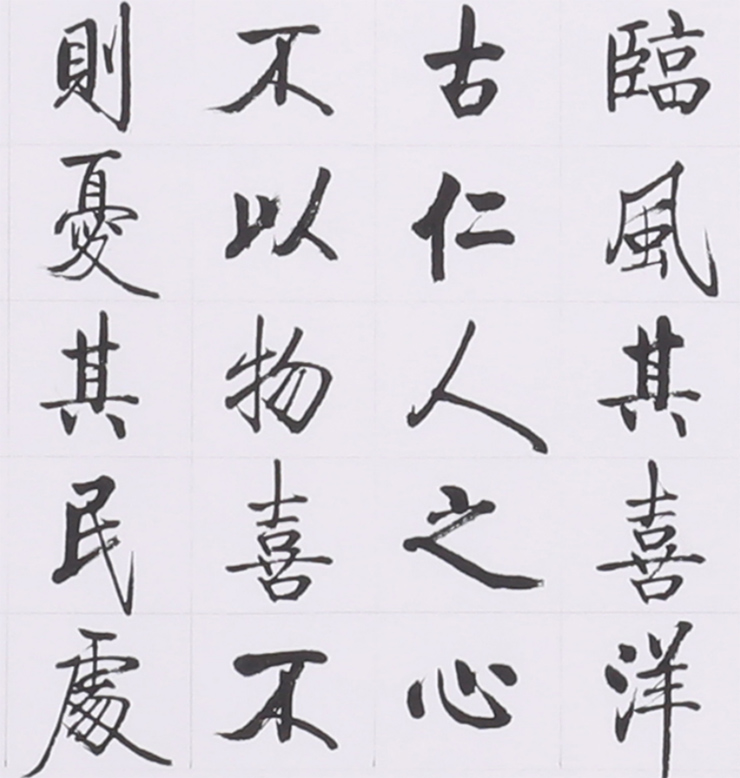 臨風其喜洋
古仁人之心
不以物喜不
則憂其民處